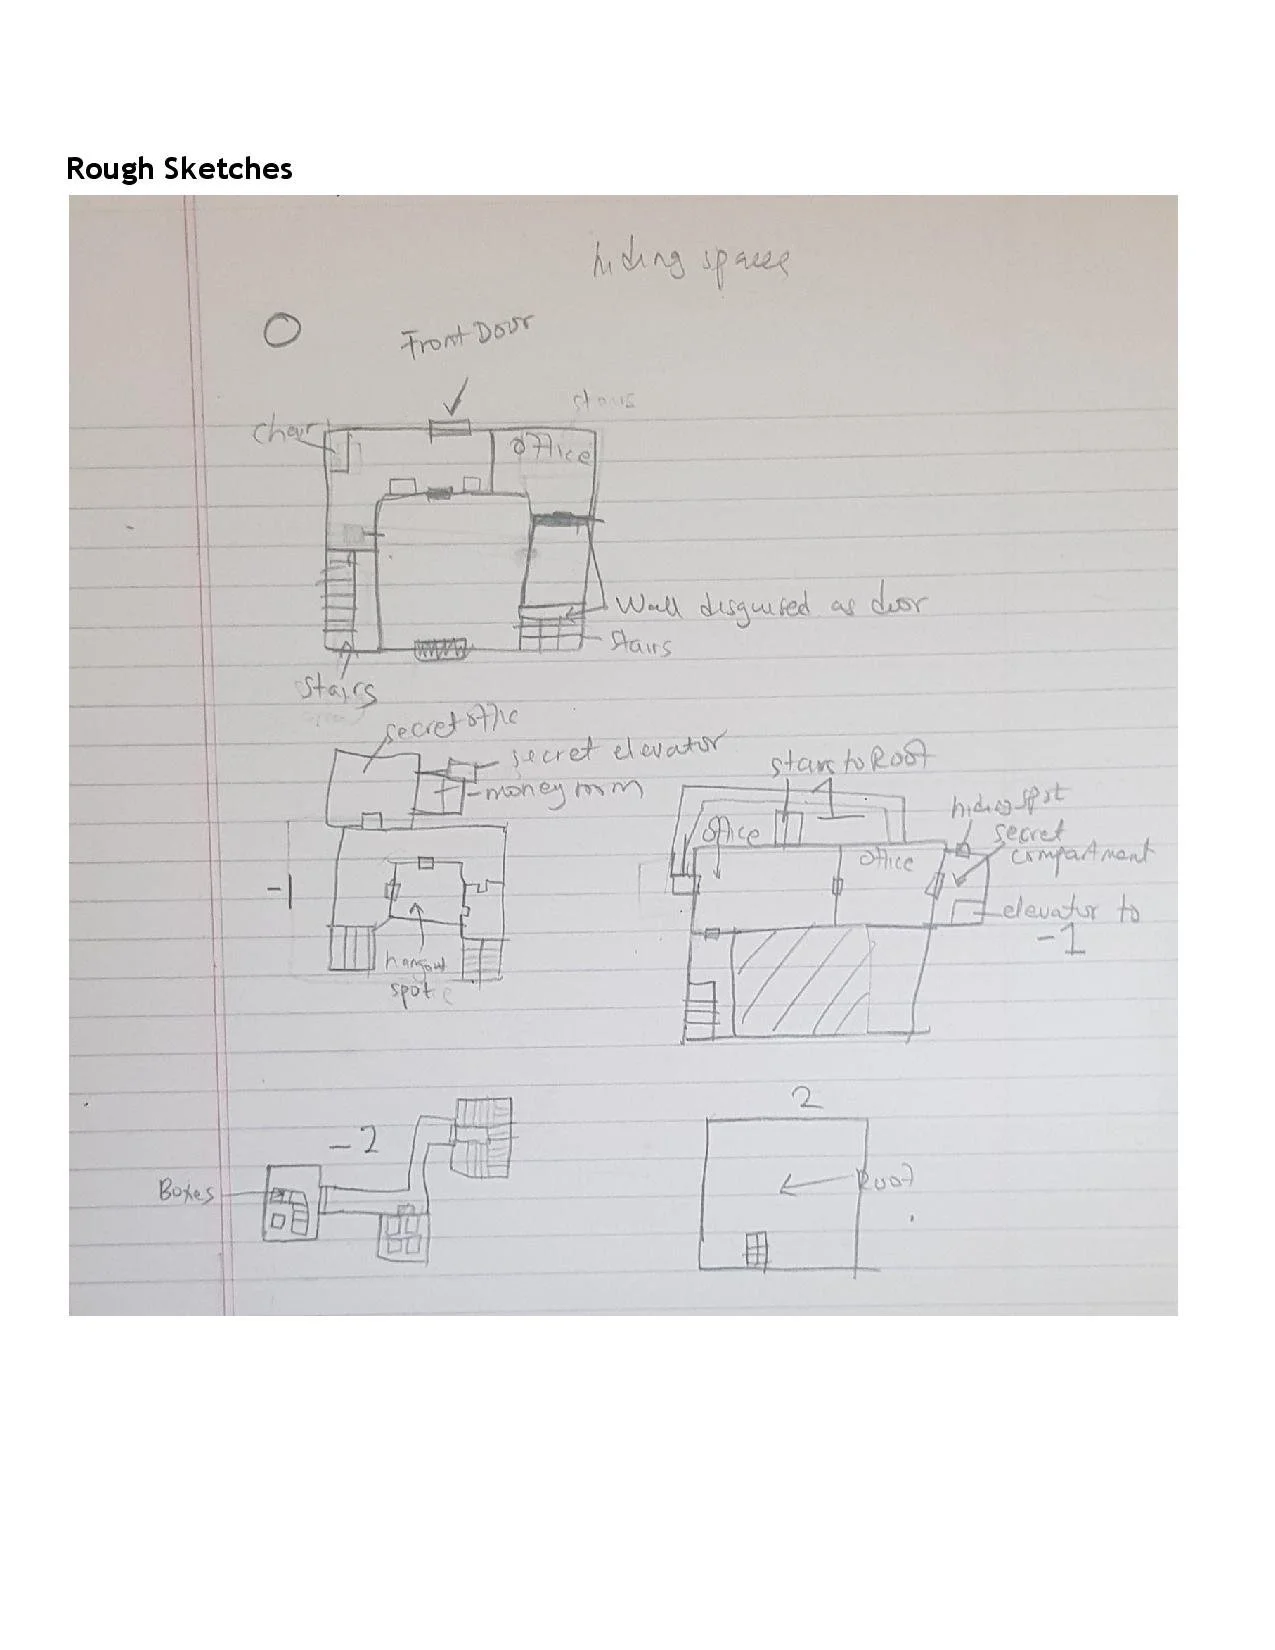 Rough Sketches
hiding spaces
0
Front Door
stairs
chair
office
Wall disguised as door
stairs
stairs
secret offic
secret elevator
money room
-1
hangout
spot
stairs to Roof
1
office
office
hiding spot
secret
compartment
elevator to
-1
-2
Boxes
2
Roof